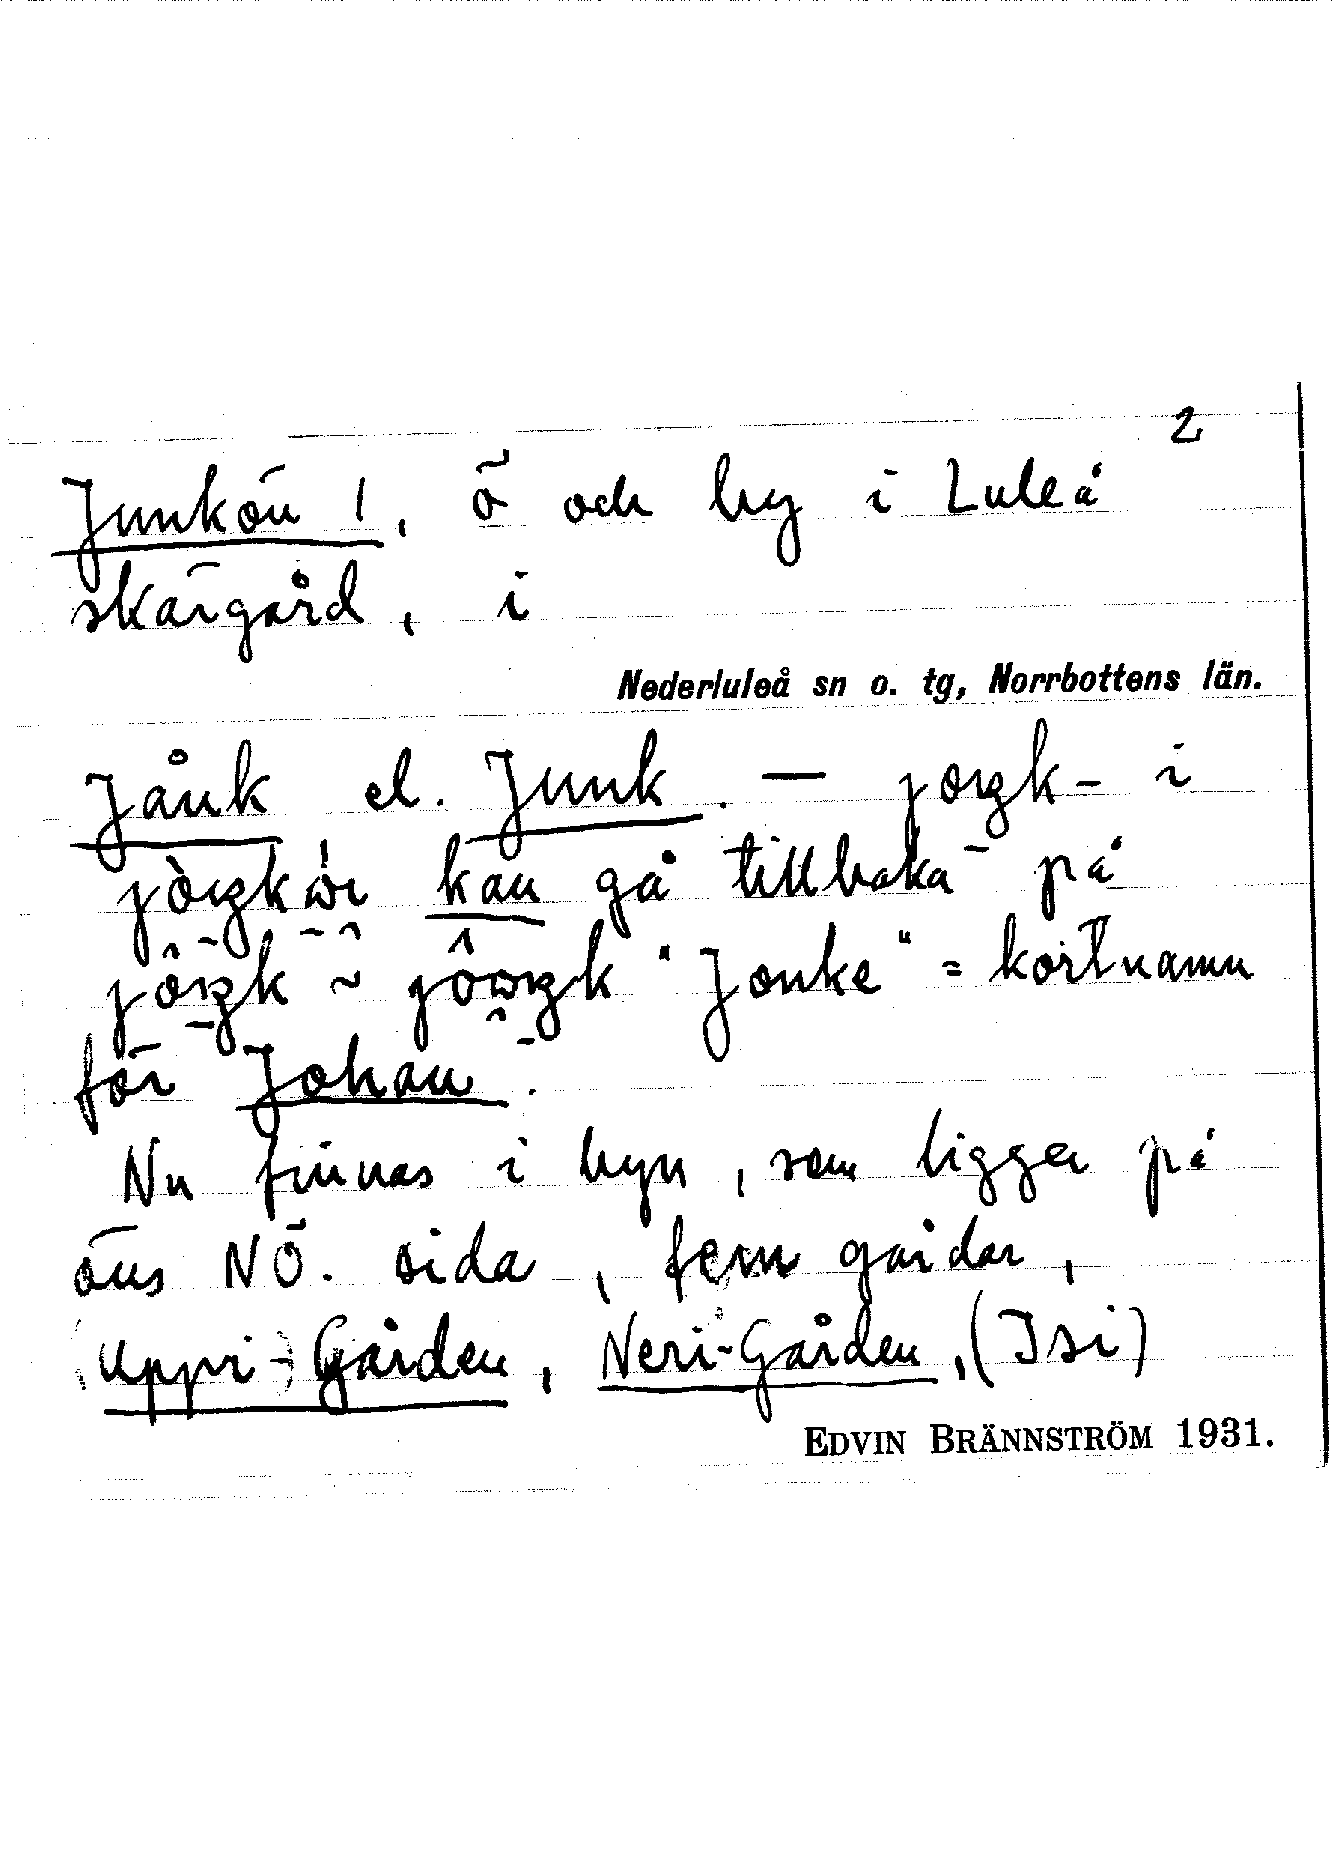 2
Junkön 1, ö och by i Luleå
skärgård, i
Nederluleå sn o. tg, Norrbottens län.
Jånk el. Junk. — i
kan gå tillbaka på
"Jonke" = kortnamn
för Johan.
Nu finnas i byn, som ligger på
öns NÖ. sida, fem gårdar,
Uppi-Gården, Neri-Gården, (Isi)
EDVIN BRÄNNSTRÖM 1931.